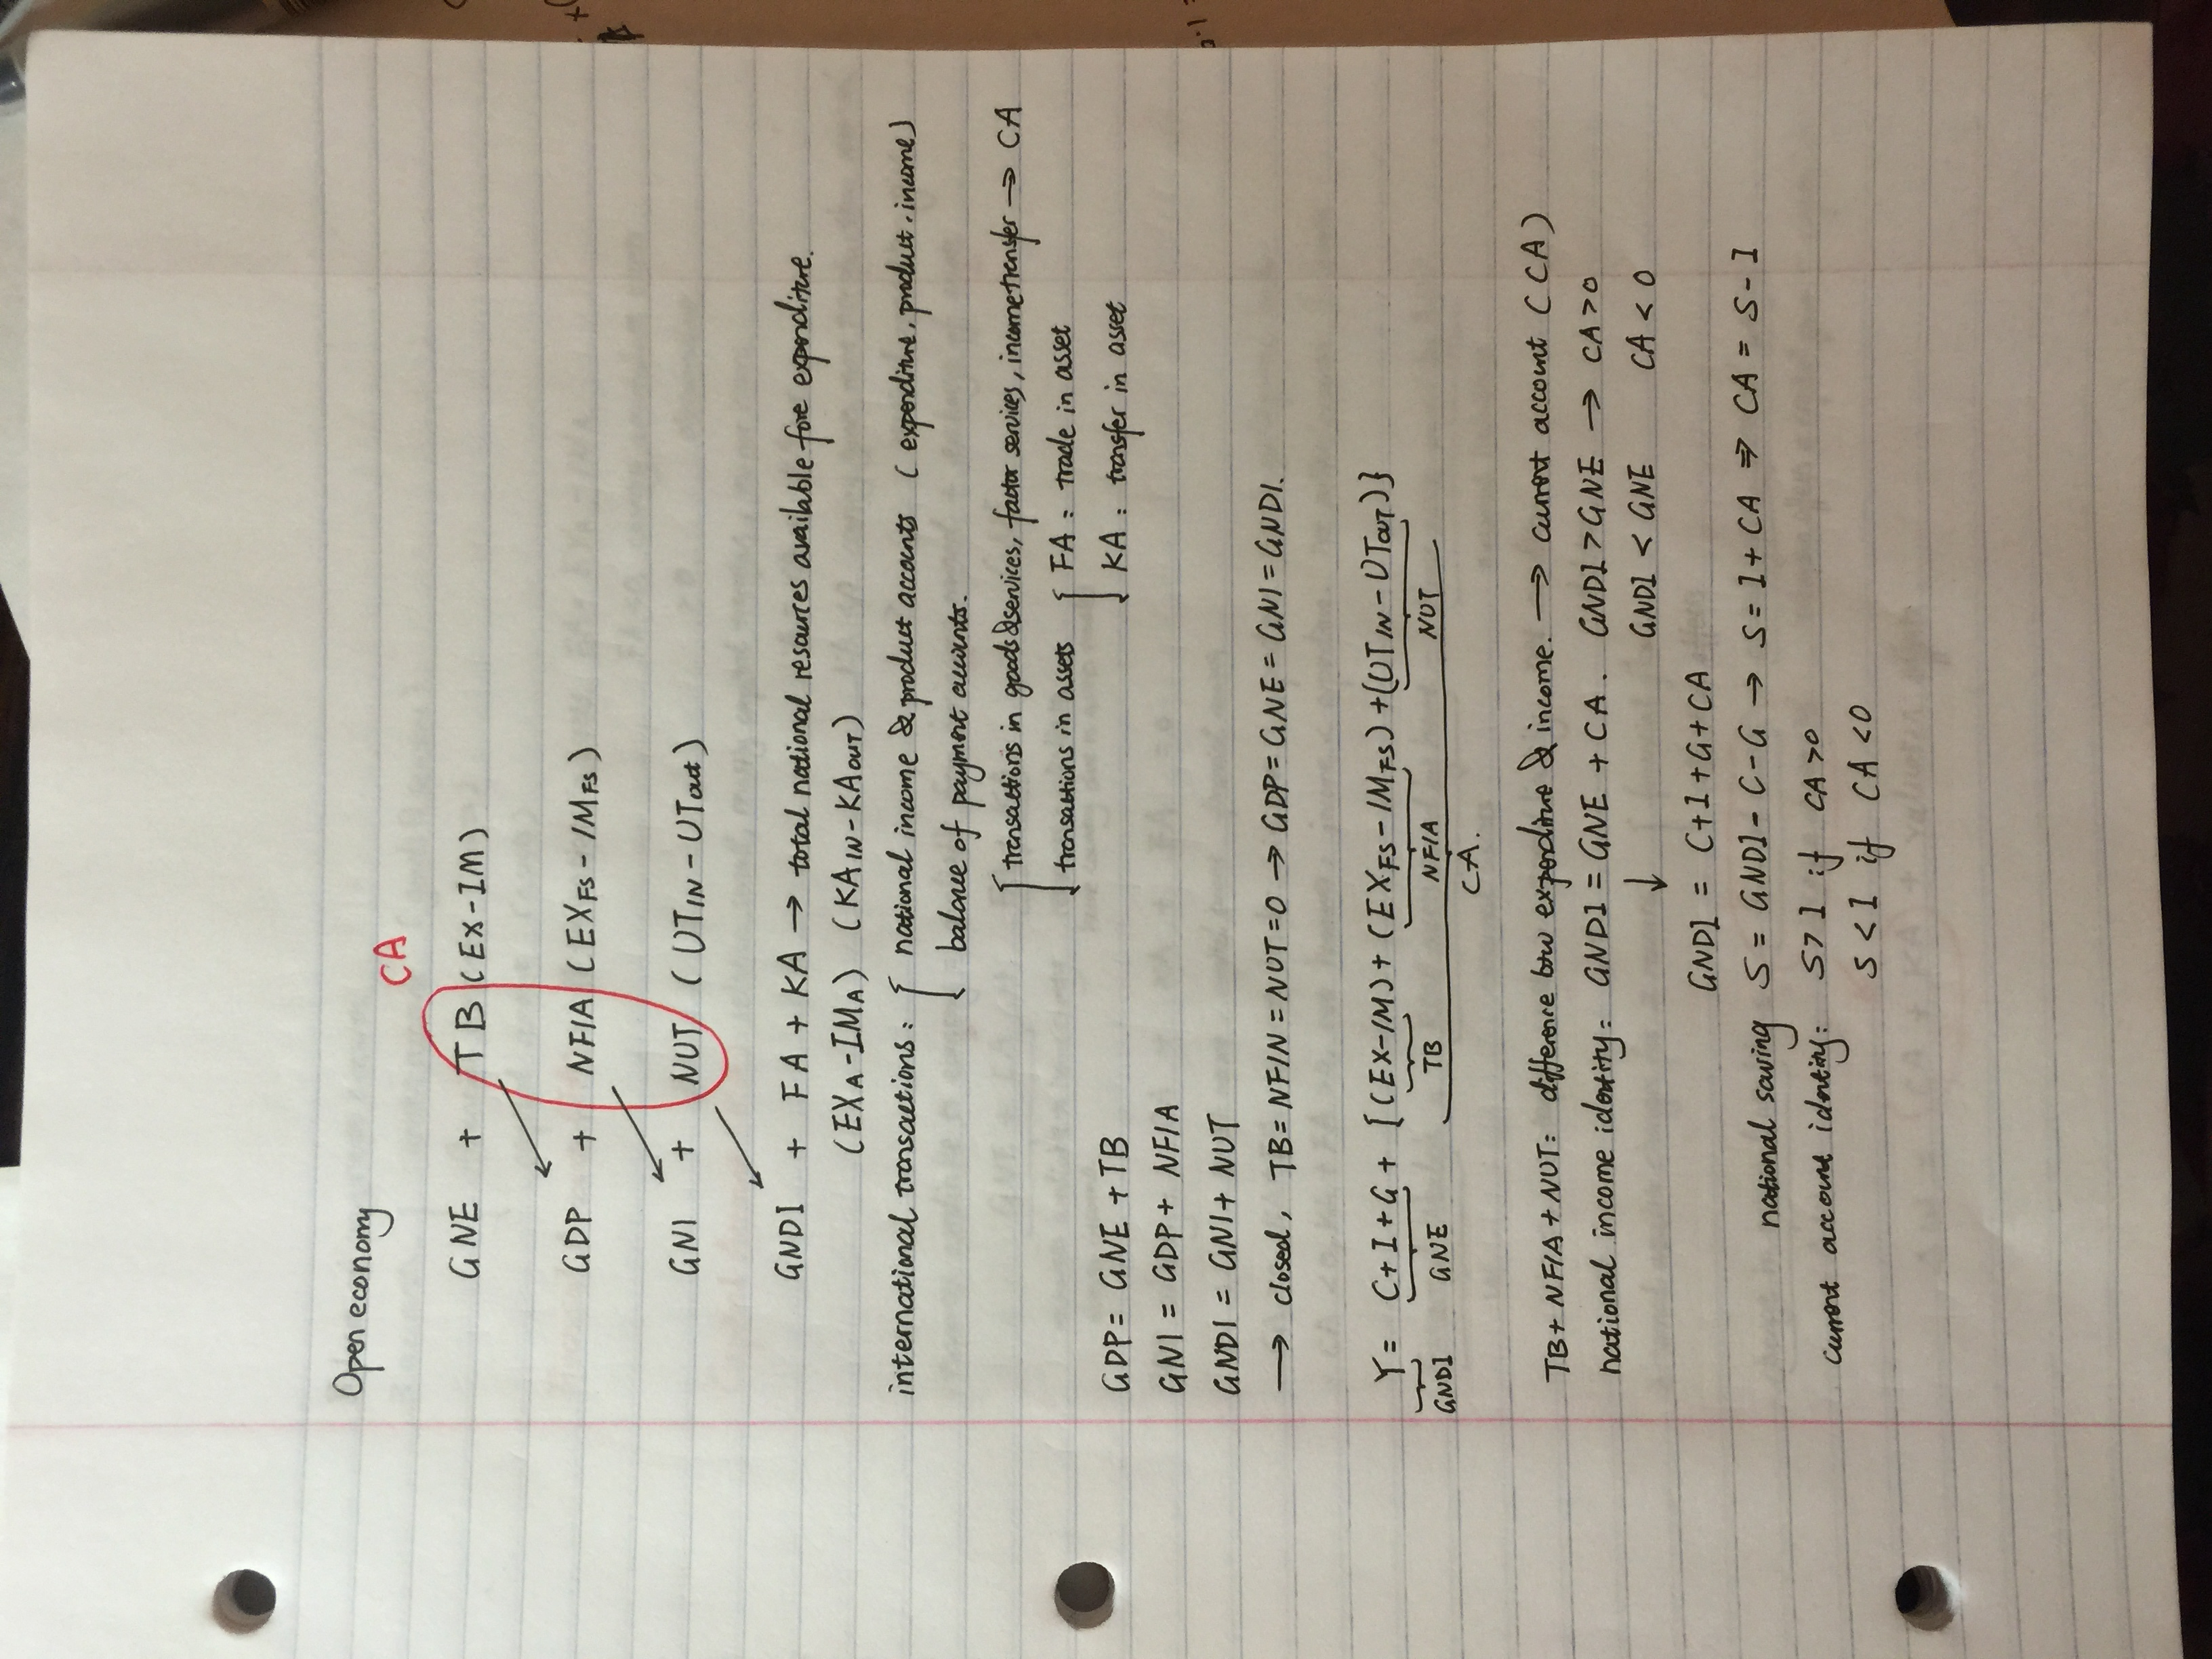 Open economy
CA
GNE + TB (EX-IM)
GDP + NFIA (EXFS-IMFS)
GNI + NUT (UTIN-UTout)
GNDI + FA + KA → total national resources available fore expenditure.
(EXA-IMA) (KAIN-KAOUT)
international transactions: { national income & product accounts (expenditure, product, income)
balance of payment accounts.
[ transactions in goods & services, factor services, income transfer → CA
transactions in assets { FA: trade in asset
KA: transfer in asset
GDP = GNE + TB
GNI = GDP + NFIA
GNDI = GNI + NUT
→ closed, TB = NFIN = NUT = 0 → GDP = GNE = GNI = GNDI.
Y = C+I+G + [(EX-IM) + (EXFS-IMFS) + (UTIN-UTout)}
GNDI GNE TB NFIA NUT
CA.
TB + NFIA + NUT: difference btw expenditure & income. → current account (CA)
national income identity: GNDI = GNE + CA. GNDI > GNE → CA > 0
↓ GNDI < GNE CA < 0
GNDI = C+I+G+CA
national saving S = GNDI - C - G → S = I + CA ⇒ CA = S - I
current account identity: S > I if CA > 0
S < I if CA < 0